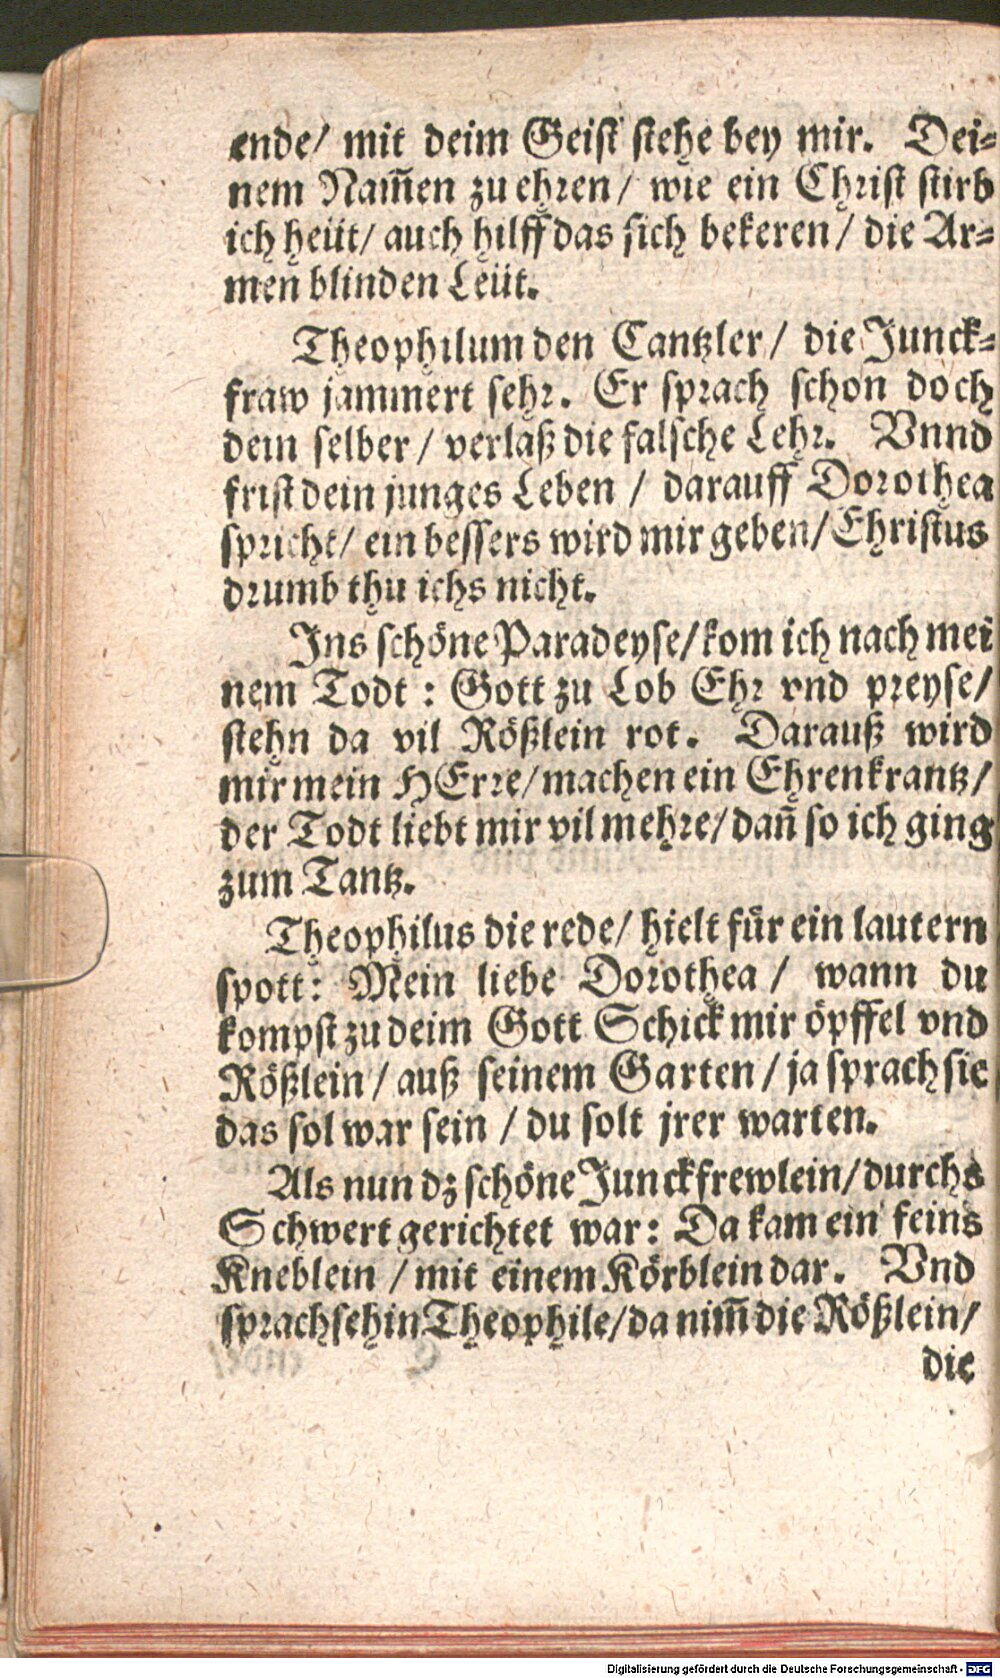 ende/ mit deim Geist stehe bey mir. Dei-
nem Nam̄en zu ehren/ wie ein Christ stirb
ich heüt/ auch hilff das sich bekeren/ die Ar-
men blinden Leüt.
Theophilum den Cantzler/ die Junck-
fraw jammert sehr. Er sprach schon doch
dein selber/ verlaß die falsche Lehr. Vnnd
frist dein junges Leben/ darauff Dorothea
spricht/ ein bessers wird mir geben/ Christus
drumb thu ichs nicht.
Ins schöne Paradeyse/ kom ich nach mei
nem Todt: Gott zu Lob Ehr vnd preyse/
stehn da vil Rößlein rot. Darauß wird
mir mein HErre/ machen ein Ehrenkrantz/
der Todt liebt mir vil mehre/ dañ so ich ging
zum Tantz.
Theophilus die rede/ hielt für ein lautern
spott: Mein liebe Dorothea/ wann du
kompst zu deim Gott Schick mir öpffel vnd
Rößlein/ auß seinem Garten/ ja sprach sie
das sol war sein/ du solt jrer warten.
Als nun dz schöne Junckfrewlein/ durchs
Schwert gerichtet war: Da kam ein feins
Kneblein/ mit einem Körblein dar. Vnd
sprach sehin Theophile/ da nim̄ die Rößlein/
die
Digitalisierung gefördert durch die Deutsche Forschungsgemeinschaft - DFG